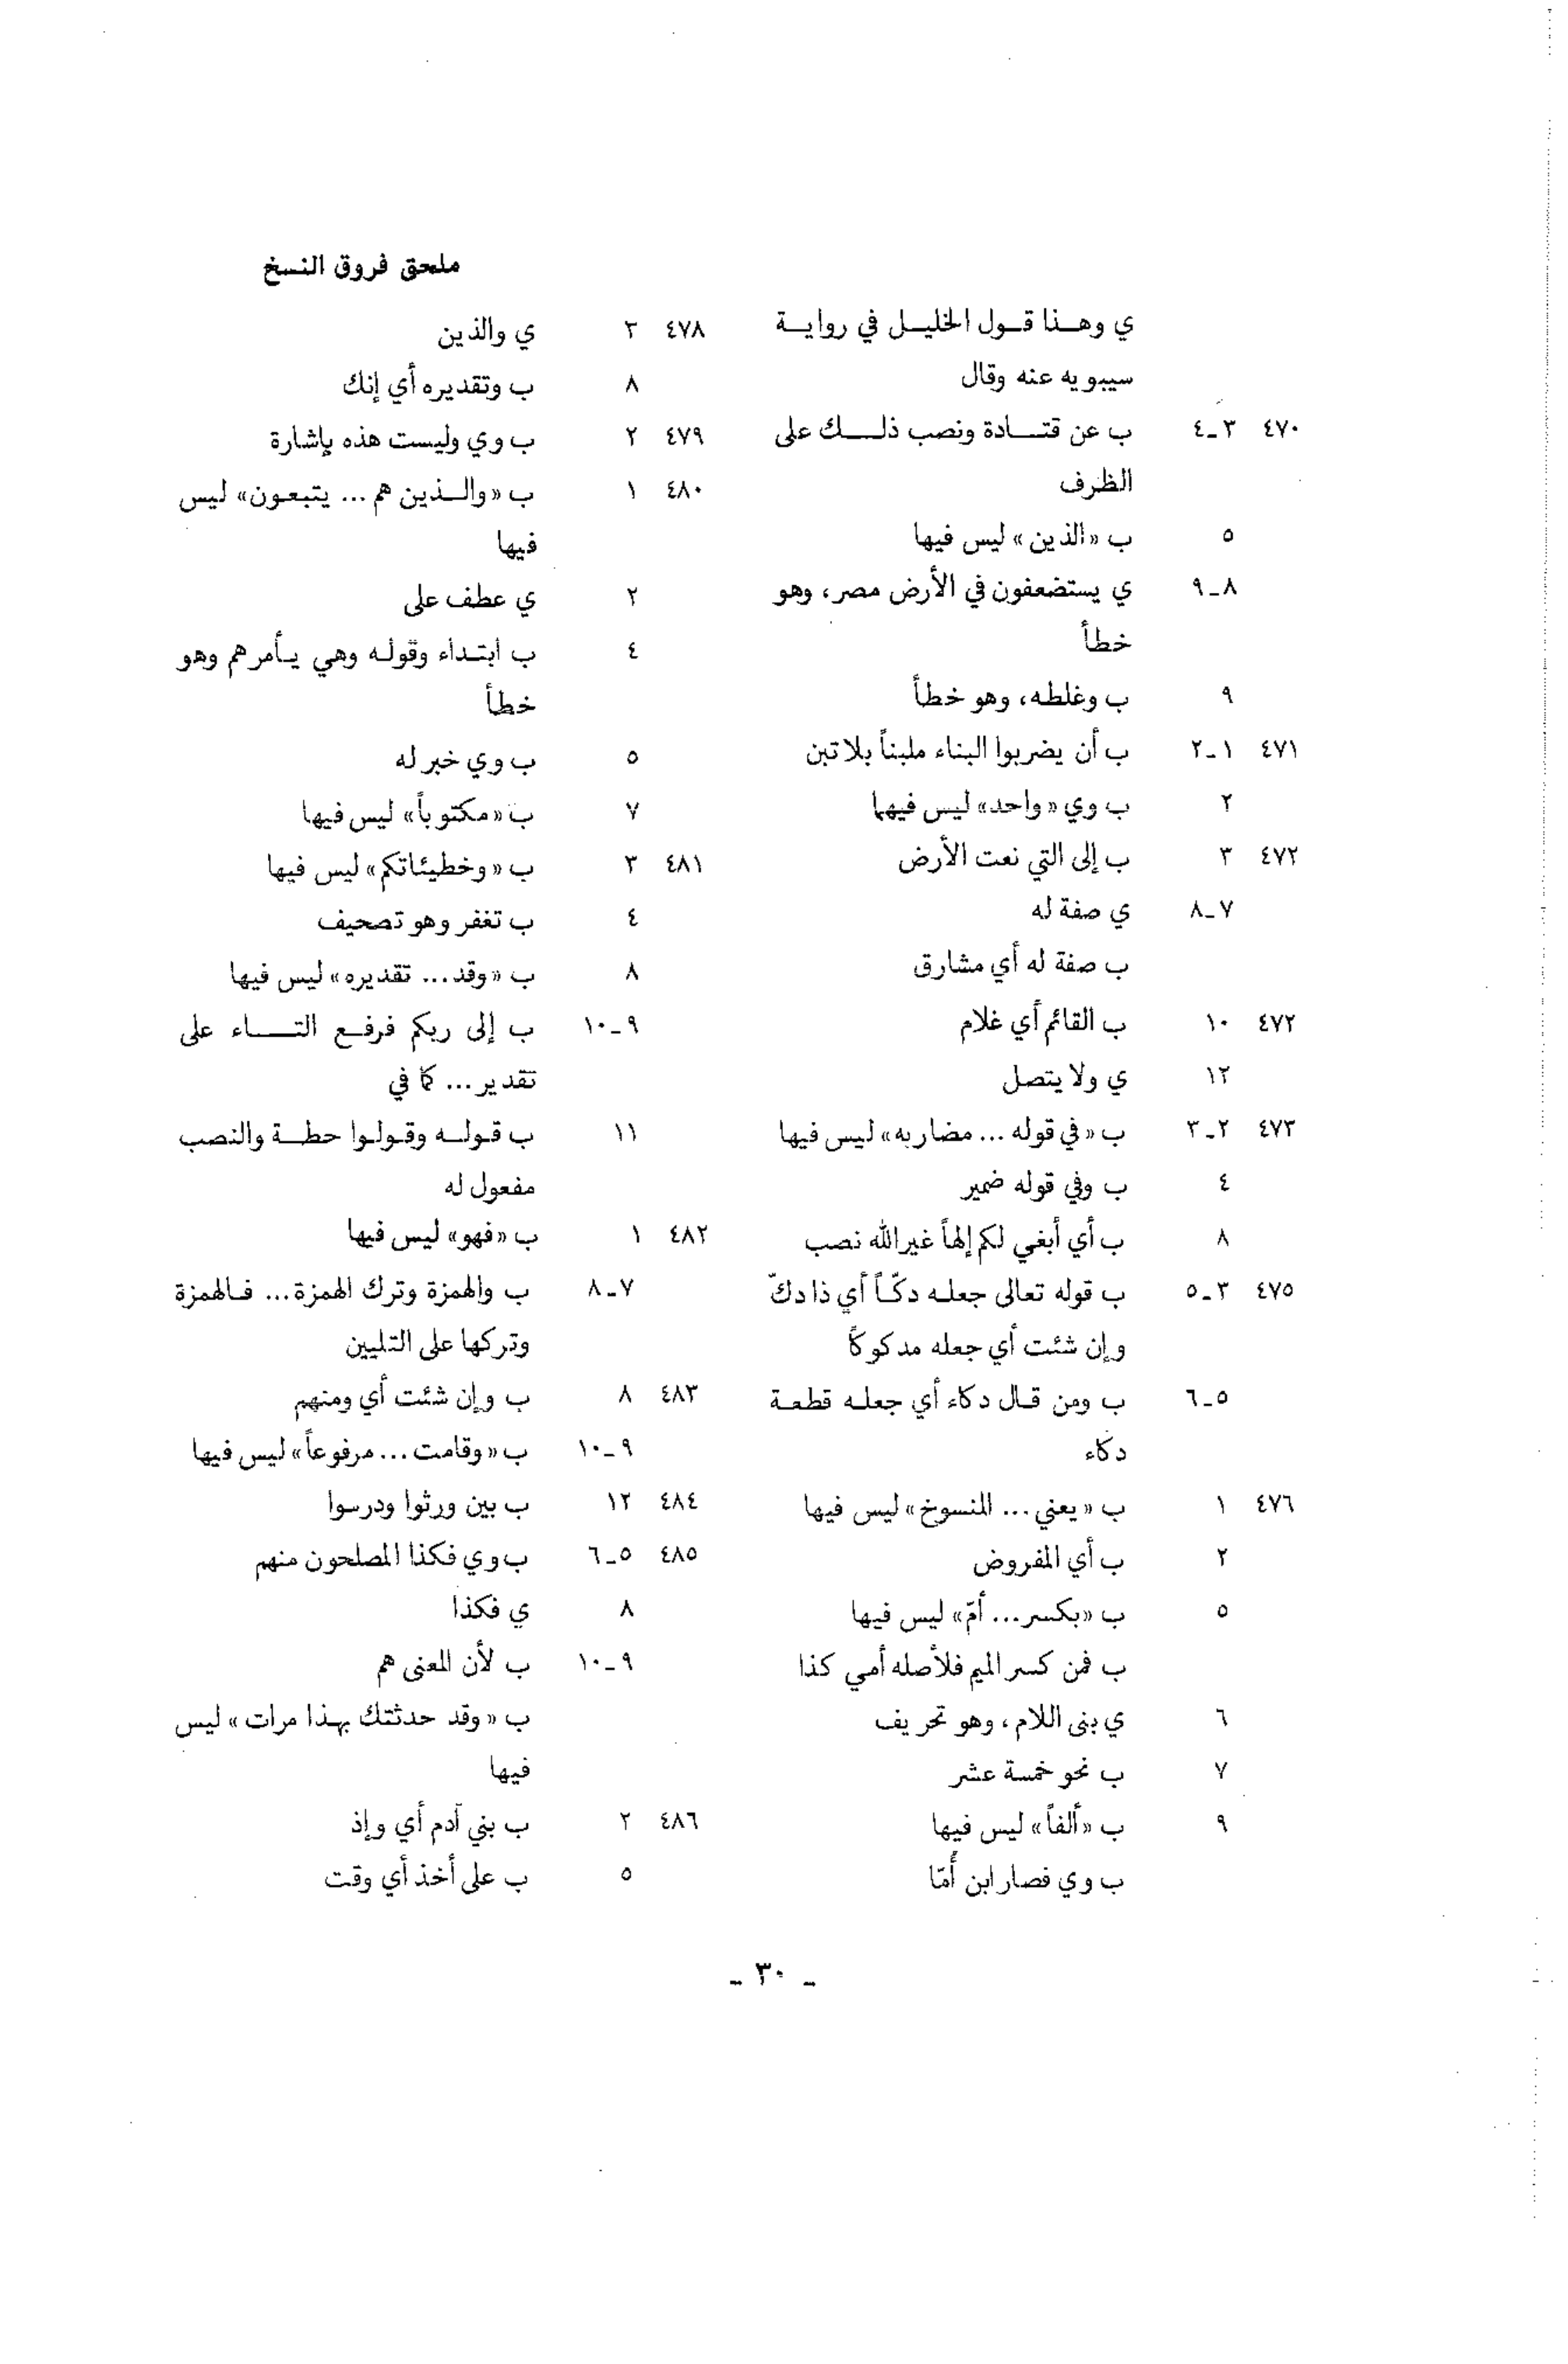 ملحق فروق النسخ
ي وهـذا قـول الخليـل في روايـة
سيبويه عنه وقال
٤٧٠ ٣ـ٤ ب عن قتـادة ونصب ذلـك على
الظرف
٥ ب «الذين» ليس فيها
٨ـ٩ ي يستضعفون في الأرض مصر، وهو
خطأ
٩ ب وغلطه، وهو خطأ
٤٧١ ١ـ٢ ب أن يضربوا البناء ملبناً بلا تبن
٢ ب وي «واحد» ليس فيهما
٤٧٢ ٣ ب إلى التي نعت الأرض
٧ـ٨ ي صفة له
ب صفة له أي مشارق
٤٧٢ ١٠ ب القائم أي غلام
١٢ ي ولا يتصل
٤٧٣ ٢ـ٣ ب «في قوله ... مضاربه» ليس فيها
٤ ب وفي قوله ضمير
٨ ب أي أبغي لكم إلهاً غير الله نصب
٤٧٥ ٣ـ٥ ب قوله تعالى جعلـه دكّـاً أي ذا دكّ
وإن شئت أي جعله مدكوكاً
٥ـ٦ ب ومن قـال دكاء أي جعلـه قطعـة
دكاء
٤٧٦ ١ ب «يعني ... المنسوخ» ليس فيها
٢ ب أي المفروض
٥ ب «بكسر ... أمّ» ليس فيها
ب فمن كسر الميم فلأصله أمي كذا
٦ ي بنى اللام، وهو تحريف
٧ ب نحو خمسة عشر
٩ ب «ألفاً» ليس فيها
ب وي فصار ابن أُمّا
٤٧٨ ٣ ي والذين
٨ ب وتقديره أي إنك
٤٧٩ ٢ ب وي وليست هذه بإشارة
٤٨٠ ١ ب «والـذين هم ... يتبعـون» ليس
فيها
٢ ي عطف على
٤ ب ابتـداء وقولـه وهي يـأمرهم وهو
خطأ
٥ ب وي خبر له
٧ ب «مكتوباً» ليس فيها
٤٨١ ٣ ب «وخطيئاتكم» ليس فيها
٤ ب تغفر وهو تصحيف
٨ ب «وقد ... تقديره» ليس فيها
٩ـ١٠ ب إلى ربكم فرفـع التـاء على
تقدير ... كما في
١١ ب قولـه وقـولـوا حطـة والنصب
مفعول له
٤٨٢ ١ ب «فهو» ليس فيها
٧ـ٨ ب والهمزة وترك الهمزة ... فـالهمزة
وتركها على التليين
٤٨٣ ٨ ب وإن شئت أي ومنهم
٩ـ١٠ ب «وقامت ... مرفوعاً» ليس فيها
٤٨٤ ١٢ ب بين ورثوا ودرسوا
٤٨٥ ٥ـ٦ ب وي فكذا المصلحون منهم
٨ ي فكذا
٩ـ١٠ ب لأن المعنى هم
ب «وقد حدثتك بهـذا مرات» ليس
فيها
٤٨٦ ٢ ب بني آدم أي وإذ
٥ ب على أخذ أي وقت
ـ ٣٠ ـ